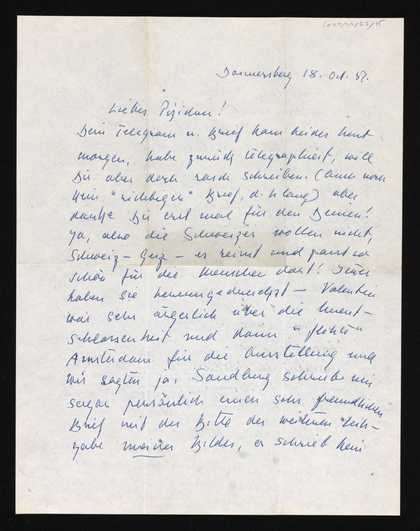 Donnersberg 18. Okt. 59.
Lieber Pizidan!
Dein Telegramm u. Brief kam beides heut
morgen, habe zurück telegraphiert, will
Dir aber doch rasch schreiben. (auch noch
kein "richtiger" Brief, d.h. lang) aber
danke Dir erst mal für den Deinen!
Ja, also die Schweizer wollen nicht,
Schweiz - Geiz - es reimt und passt so
schön für die Menschen dort!
haben sie herumgedruckst - Valentin
war sehr ärgerlich über die Unent-
schlossenheit und dann
Amsterdam für die Ausstellung und
wir sagten ja. Sandberg schrieb mir
sogar persönlich einen sehr freundlichen
Brief mit der Bitte der weiteren Leih-
gabe meiner Bilder, er schrieb kein